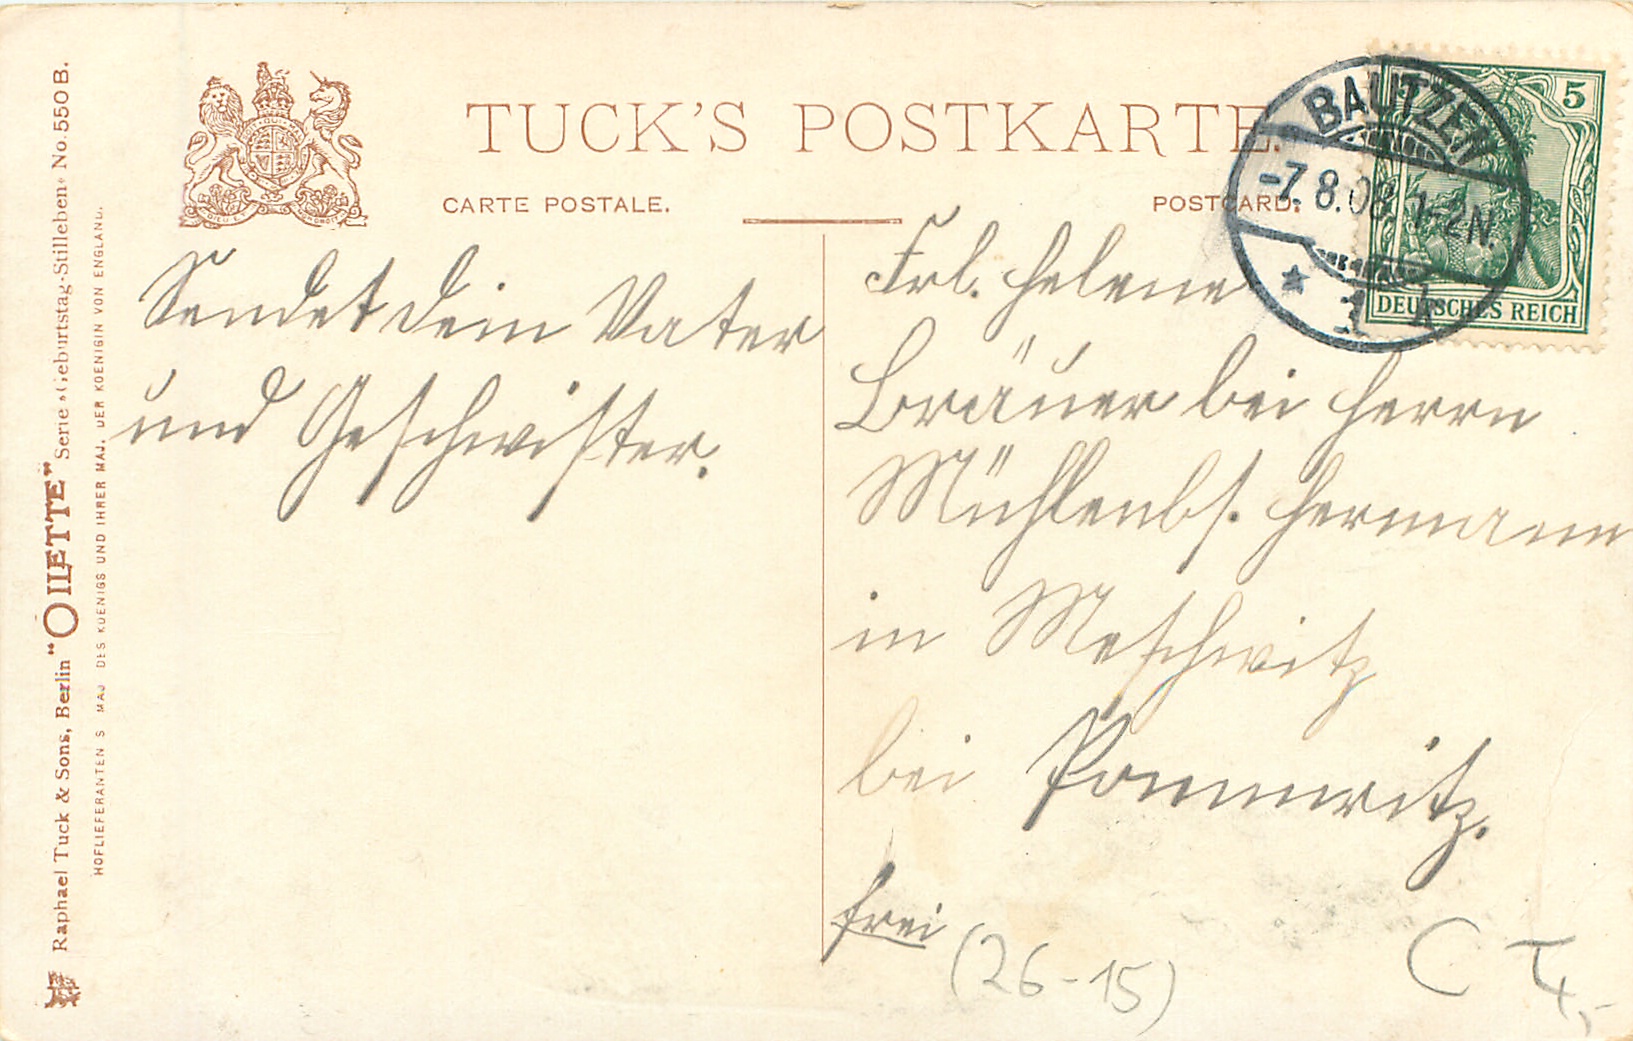 TUCK'S POSTKARTE.
CARTE POSTALE.
POSTCARD.
BAUTZEN
-7.8.08. 1-2N.
5
DEUTSCHES REICH
Sendet dein Vater
und Geschwister.
Frl. Helene
Bräuer bei Herrn
Mühlenbs. Hermann
in Meschwitz
bei Pommritz.
frei
(26-15)
Raphael Tuck & Sons, Berlin "OILETTE" Serie »Geburtstag-Stilleben« No. 550 B.
HOFLIEFERANTEN S MAJ DES KOENIGS UND IHRER MAJ. DER KOENIGIN VON ENGLAND.